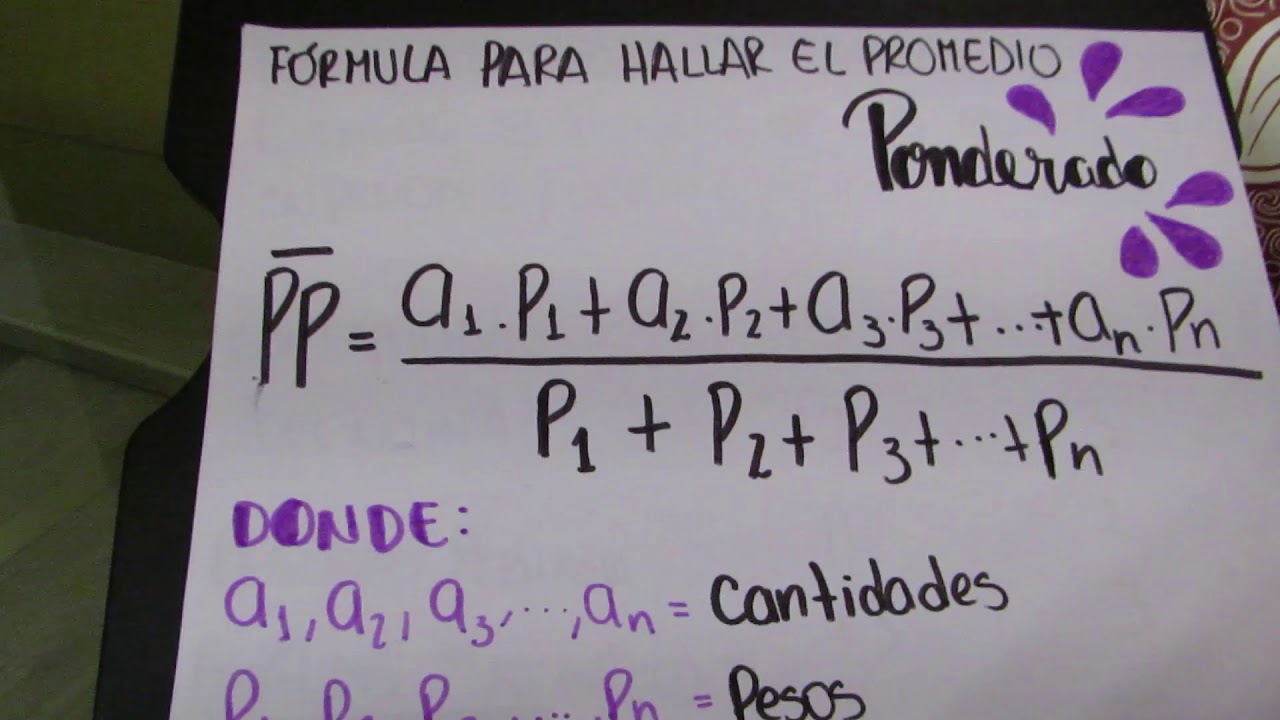 FÓRMULA PARA HALLAR EL PROMEDIO
Ponderado
P̅P̅ = a₁.P₁ + a₂.P₂ + a₃.P₃ + ... + aₙ.Pₙ
P₁ + P₂ + P₃ + ... + Pₙ
DONDE:
a₁, a₂, a₃, ..., aₙ = Cantidades
P₁ P₂ P₃ .... Pₙ = Pesos